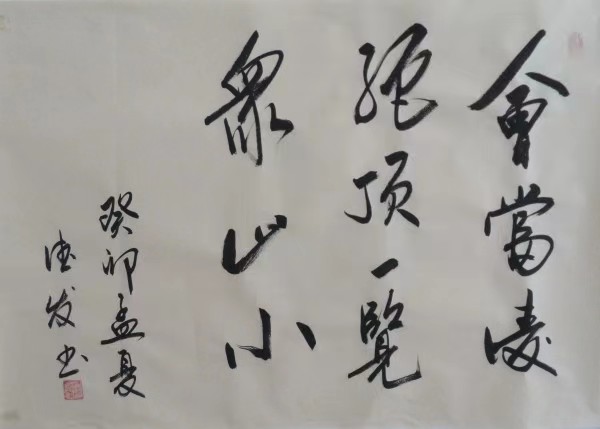 會當凌
絕顶一覽
眾山小
癸卯孟夏
德发书